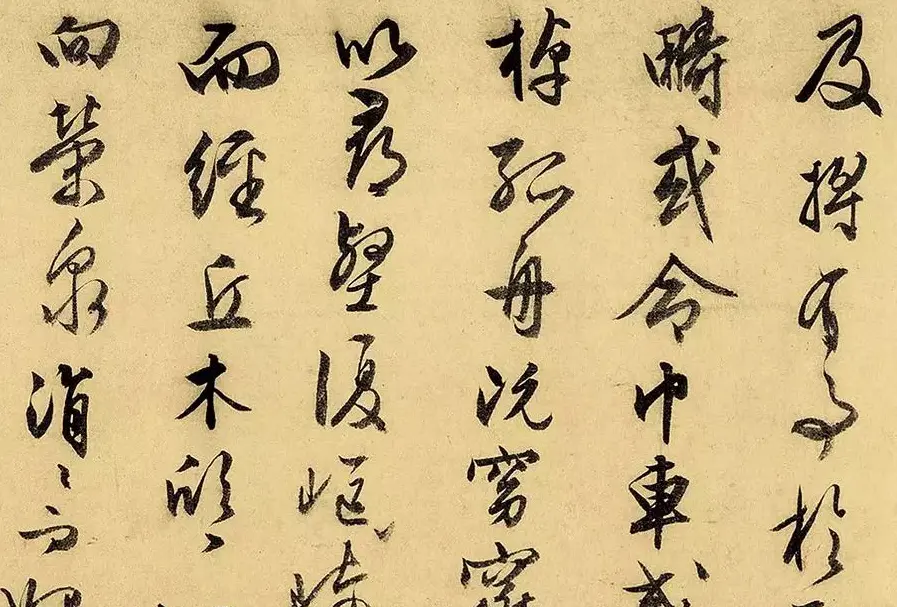 及將有事於
疇或命巾車或
棹孤舟既窈窕
以尋壑復嶇崎
而經丘木欣々
向榮泉涓々而